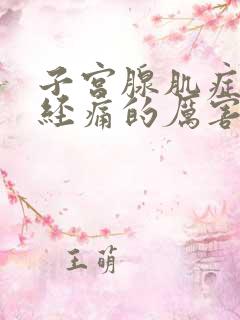 子宫腺肌症
经痛的厉害
王萌